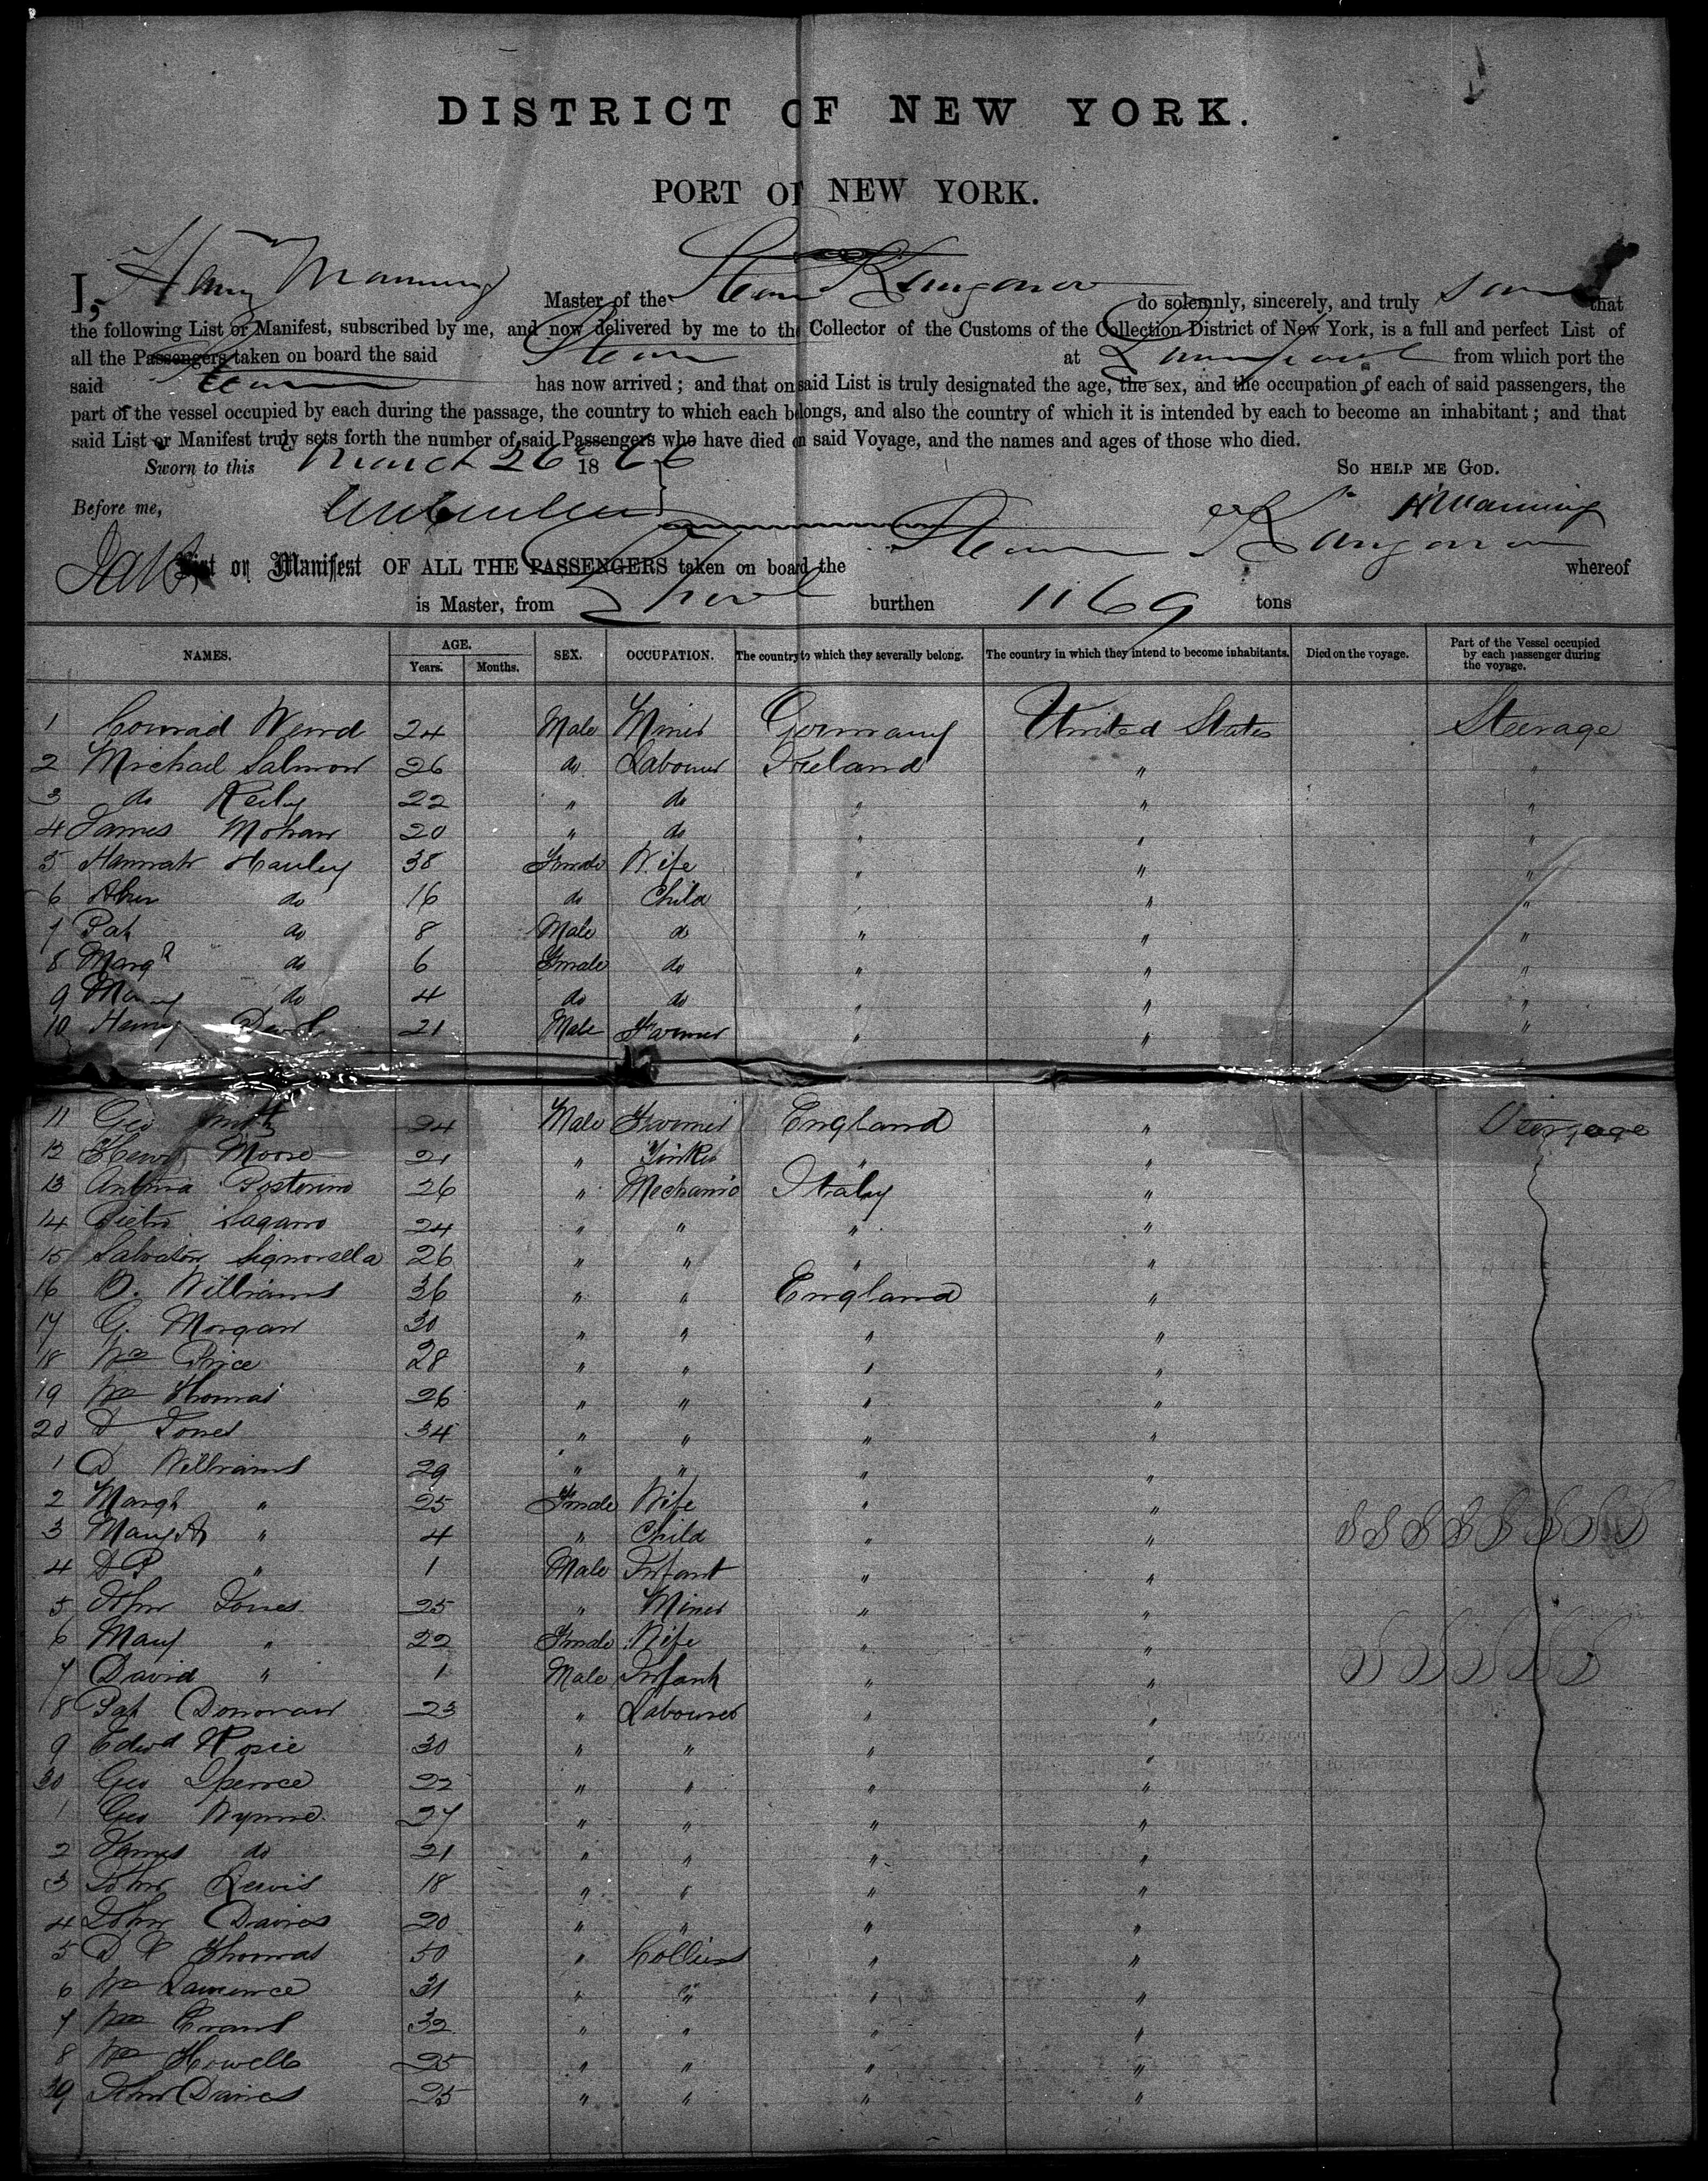 DISTRICT OF NEW YORK.
PORT OF NEW YORK.
I, Henry Manning Master of the Steamer Kangaroo do solemnly, sincerely, and truly that
the following List or Manifest, subscribed by me, and now delivered by me to the Collector of the Customs of the Collection District of New York, is a full and perfect List of
all the Passengers taken on board the said Steamer at Liverpool from which port the
said Steamer has now arrived; and that on said List is truly designated the age, the sex, and the occupation of each of said passengers, the
part of the vessel occupied by each during the passage, the country to which each belongs, and also the country of which it is intended by each to become an inhabitant; and that
said List or Manifest truly sets forth the number of said Passengers who have died on said Voyage, and the names and ages of those who died.
Sworn to this March 26 1866 SO HELP ME GOD.
Before me, H Manning
List or Manifest OF ALL THE PASSENGERS taken on board the Steamer Kangaroo whereof
is Master, from L'pool burthen 1169 tons
NAMES. AGE. Years. Months. SEX. OCCUPATION. The country to which they severally belong. The country in which they intend to become inhabitants. Died on the voyage. Part of the Vessel occupied by each passenger during the voyage.
1 Conrad 24 Male Miner Germany United States Steerage
2 Michael Salmon 26 do Labourer Ireland " "
3 do Reily 22 " do " " "
4 James Mohan 20 " do " " "
5 Hannah Hanley 38 Female Wife " " "
6 do 16 do Child " " "
7 Pat do 8 Male do " " "
8 Margt do 6 Female do " " "
9 Mary do 4 do do " " "
10 Henry 21 Male Farmer " " "
11 Geo Smith 24 Male Farmer England " Steerage
12 Henry Moore 21 " Tinker " "
13 Postorino 26 " Mechanic Italy "
14 Pietro Lagano 24 " " " "
15 Salvator Signorella 26 " " " "
16 D. Williams 36 " " England "
17 G. Morgan 30 " " " "
18 Wm Price 28 " " " "
19 Wm Thomas 26 " " " "
20 D Jones 34 " " " "
1 D Williams 29 " " " "
2 Margt " 25 Female Wife " "
3 Mary A " 4 " Child " "
4 D P " 1 Male Infant " "
5 John Jones 25 " Miner " "
6 Mary " 22 Female Wife " "
7 David " 1 Male Infant " "
8 Pat Donovan 23 " Labourer " "
9 Edwd Rosie 30 " " " "
30 Geo Spence 22 " " " "
1 Geo Wynne 27 " " " "
2 James do 21 " " " "
3 John Lewis 18 " " " "
4 John Davies 20 " " " "
5 D Thomas 50 " Colliers " "
6 Wm Lawrence 31 " " " "
7 Wm Evans 32 " " " "
8 Wm Howells 25 " " " "
39 John Davies 25 " " " "